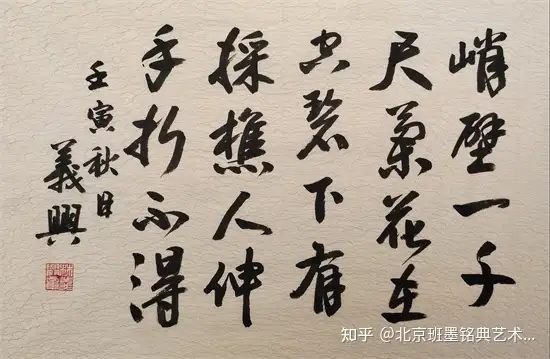 峭壁一千
尺蘭花在
空碧下有
採樵人伸
手折不得
壬寅秋日
義興
知乎 @北京班墨铭典艺术...